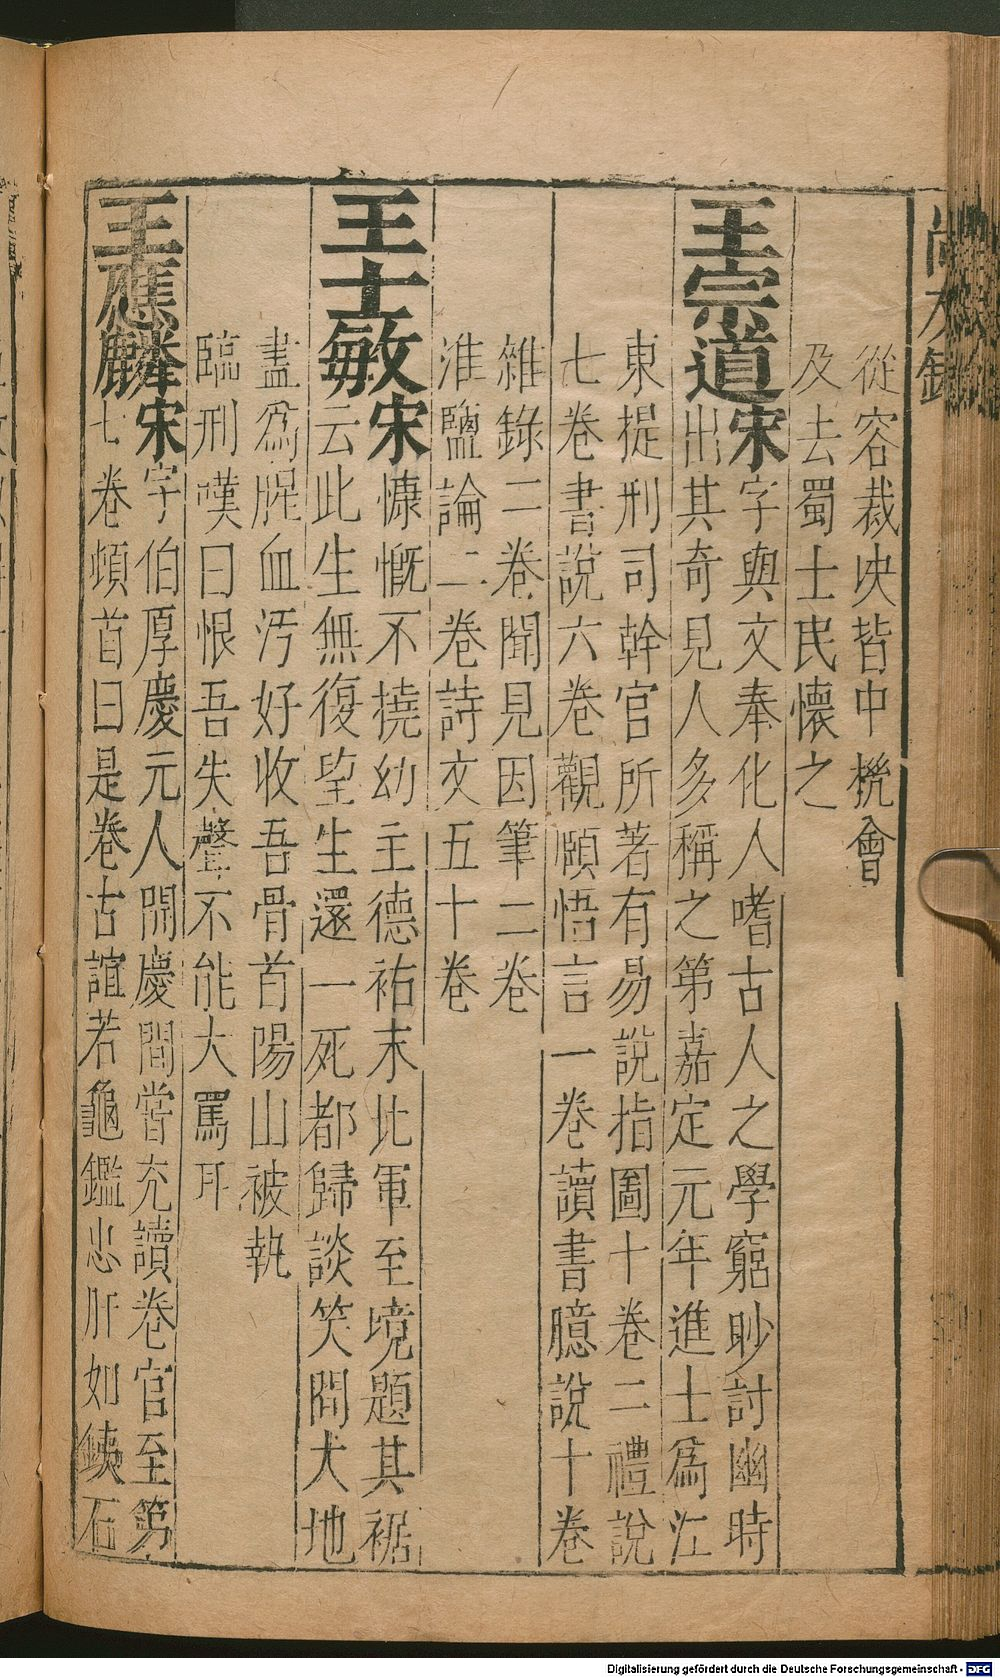 尚友錄
從容裁決皆中機會
及去蜀士民懷之
王宗道宋字與文奉化人嗜古人之學窮眇討幽時
出其奇見人多稱之第嘉定元年進士爲江
東提刑司幹官所著有易說指圖十卷二禮說
七卷書說六卷觀頤悟言一卷讀書臆說十卷
雜錄二卷聞見因筆二卷
淮鹽論二卷詩文五十卷
王士敏宋慷慨不撓幼主德祐末北軍至境題其裾
云此生無復望生還一死都歸談笑間大地
盡爲腥血汚好收吾骨首陽山被執
臨刑嘆曰恨吾失聲不能大罵耳
王應麟宋字伯厚慶元人開慶間嘗充讀卷官至第
七卷頓首曰是卷古誼若龜鑑忠肝如鉄石
Digitalisierung gefördert durch die Deutsche Forschungsgemeinschaft - DFG